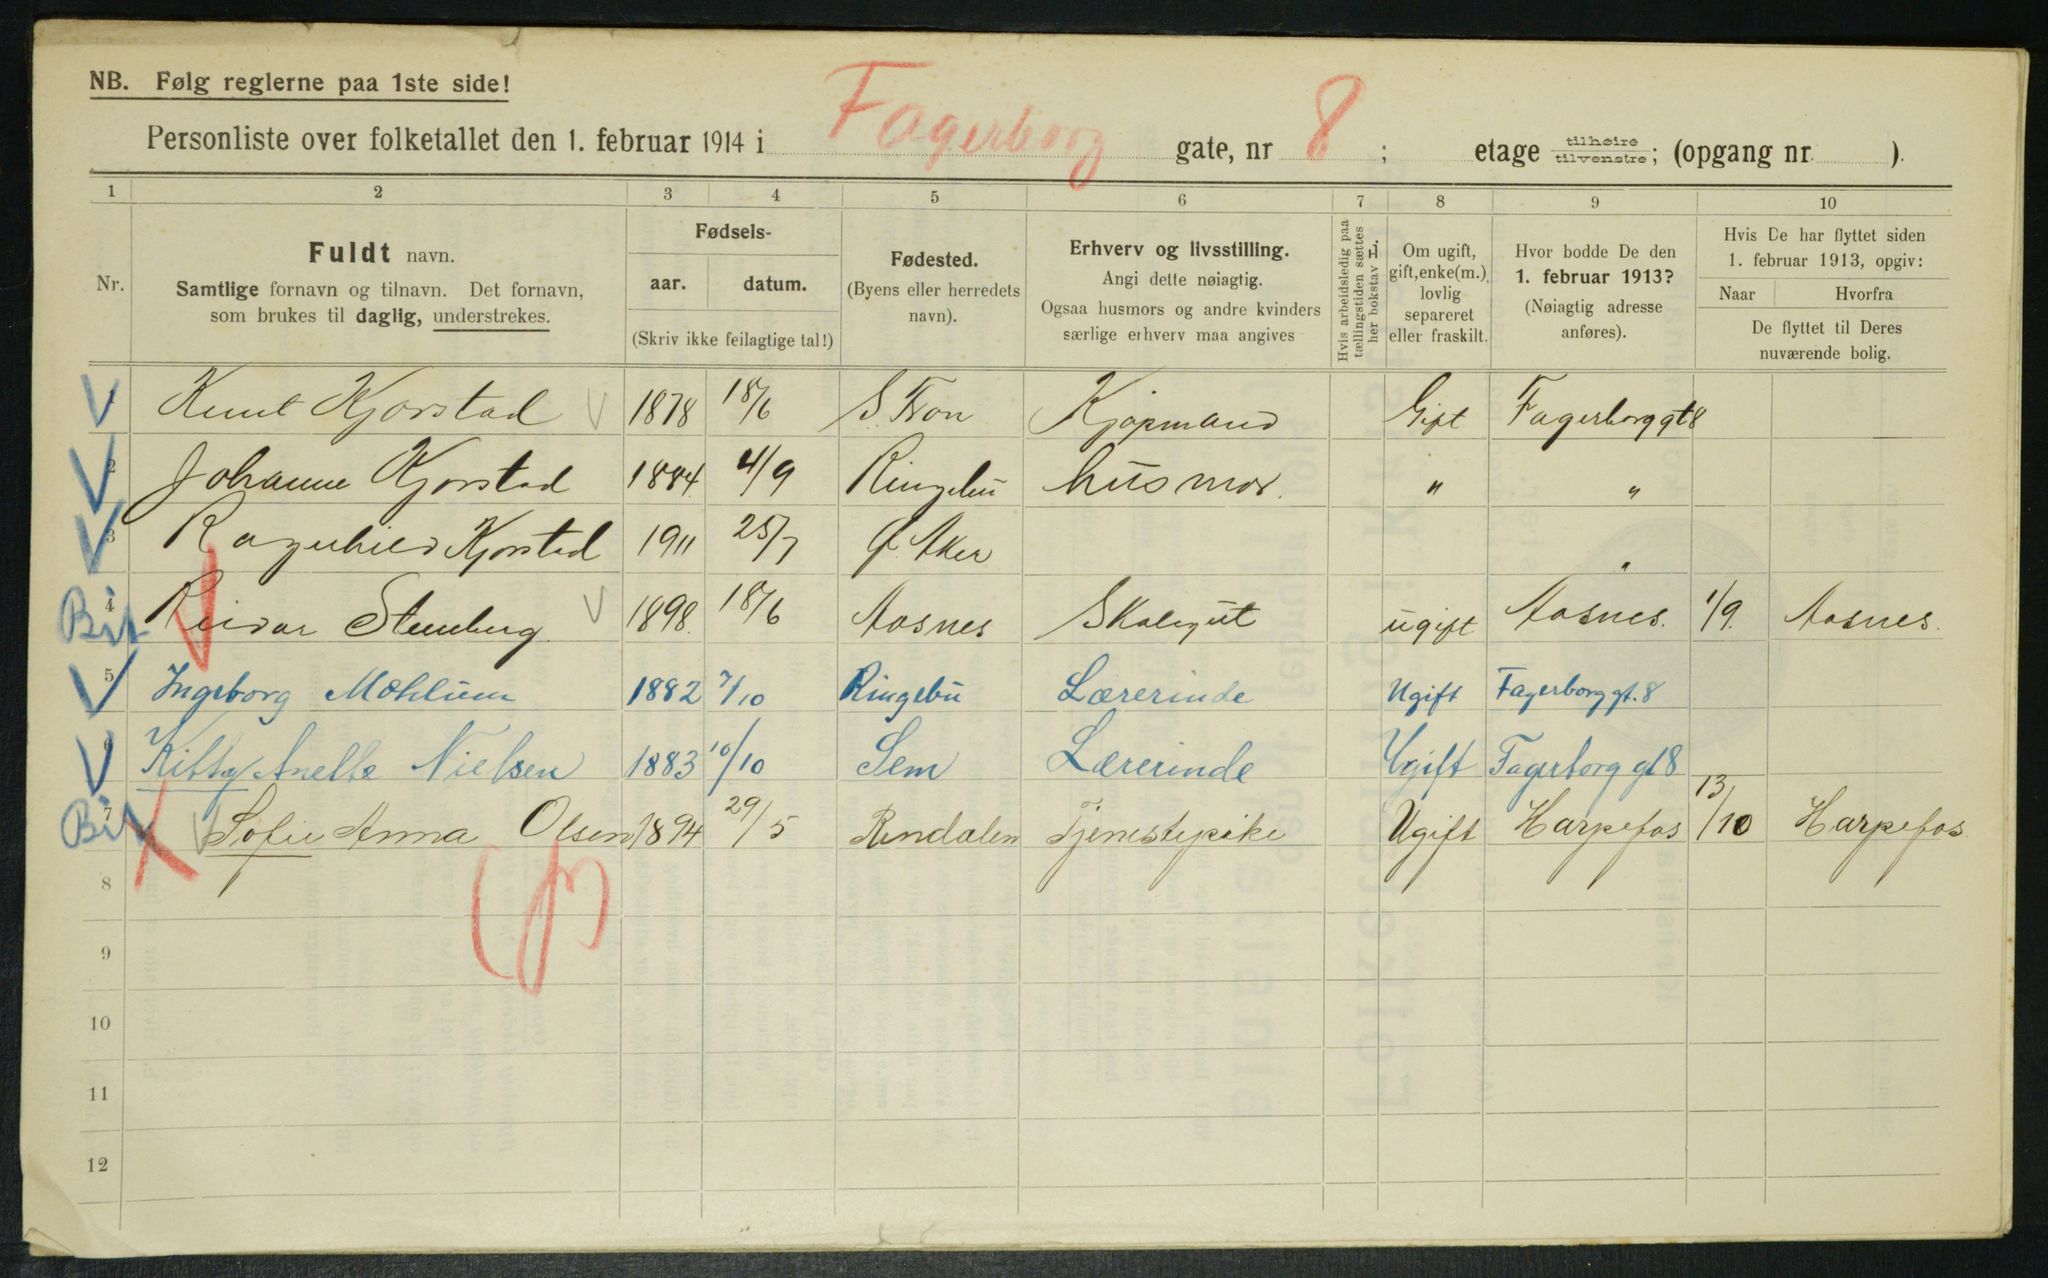 NB. Følg reglerne paa 1ste side!
Personliste over folketallet den 1. februar 1914 i Fagerborg gate, nr 8; etage tilhøire tilvenstre; (opgang nr. ).
1 2 3 4 5 6 7 8 9 10
Nr.
Fuldt navn.
Samtlige fornavn og tilnavn. Det fornavn,
som brukes til daglig, understrekes.
Fødsels-
aar. datum.
(Skriv ikke feilagtige tal!)
Fødested.
(Byens eller herredets
navn).
Erhverv og livsstilling.
Angi dette nøiagtig.
Ogsaa husmors og andre kvinders
særlige erhverv maa angives
Hvis arbeidsledig paa
tællingstiden sættes
her bokstav L.
Om ugift,
gift, enke(m.),
lovlig
separeret
eller fraskilt.
Hvor bodde De den
1. februar 1913?
(Nøiagtig adresse
anføres).
Hvis De har flyttet siden
1. februar 1913, opgiv:
Naar Hvorfra
De flyttet til Deres
nuværende bolig.
1 Knut Kjorstad 1878 18/6 S. Fron Kjøpmand Gift Fagerborggt 8
2 Johanne Kjorstad 1884 4/9 Ringebu husmor. " "
3 Ragnhild Kjorstad 1911 25/7 Ø. Aker "
Bit 4 Reidar Stemberg 1898 18/6 Aasnes Skolegut ugift Aasnes. 1/9. Aasnes.
5 Ingeborg Mæhlum 1882 7/10 Ringebu Lærerinde Ugift Fagerborggt. 8
6 Kitty Anette Nielsen 1883 10/10 Sem Lærerinde Ugift Fagerborg gt 8
Bit 7 Sofie Anna Olsen 1894 29/5 Rendalen Tjenestepike Ugift Harpefos 13/10 Harpefos.
8
9
10
11
12